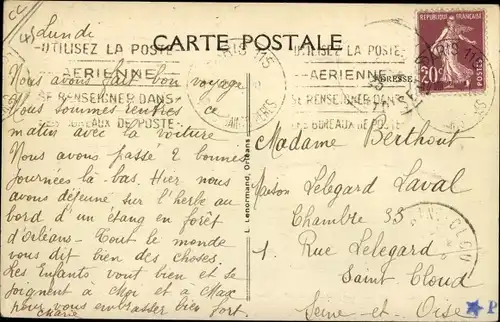 Lundi
UTILISEZ LA POSTE
AERIENNE
SE RENSEIGNER DANS
LES BUREAUX DE POSTE
CARTE POSTALE
UTILISEZ LA POSTE
AERIENNE
SE RENSEIGNER DANS
LES BUREAUX DE POSTE
PARIS 115
PARIS 115
REPUBLIQUE FRANÇAISE
20c
ADRESSE
Nous avons fait bon voyage
Nous sommes rentrés ce
matin avec la voiture
Nous avons passé 2 bonnes
journées là-bas. Hier nous
avons déjeuné sur l'herbe au
bord d'un étang en forêt
d'Orléans - Tout le monde
vous dit bien des choses.
Les Enfants vont bien et se
joignent à Moi et à Max
pour vous embrasser bien fort.
L. Lenormand, Orléans
Madame Berthout
Maison Lelegard Laval
Chambre 33
1. Rue Lelegard
Saint Cloud
Seine-et-Oise
SAINT-CLOUD
P